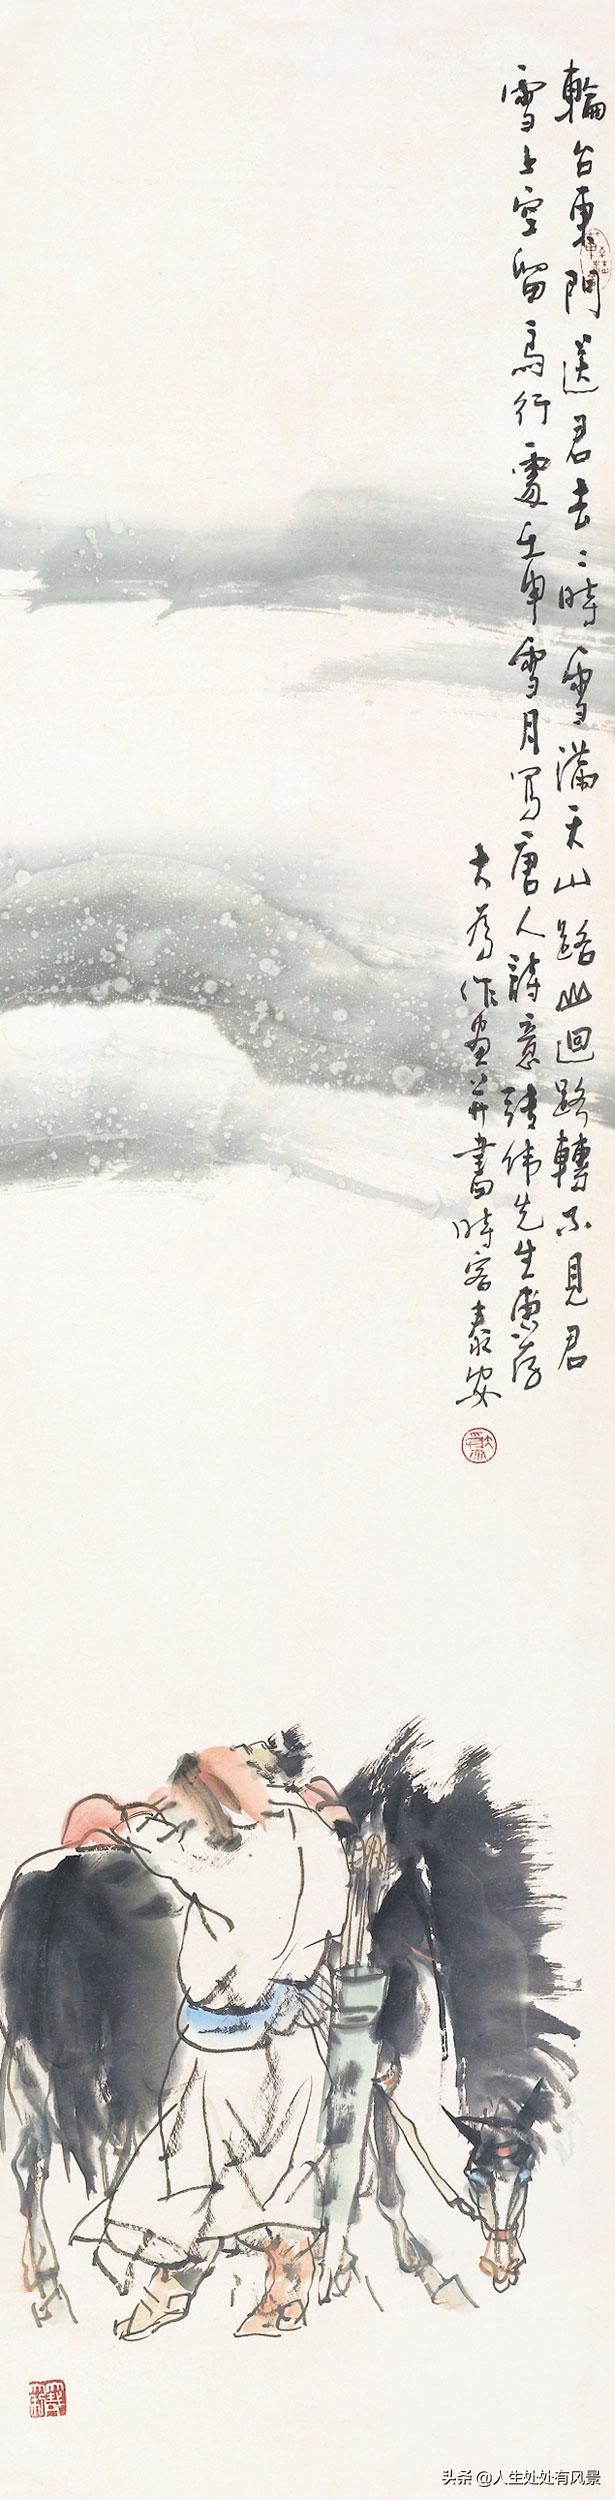 輪台東門送君去々時雪滿天山路山迴路轉不見君
雪上空留馬行處壬申雪月寫唐人詩意伟先生惠存
大為作畫并書時客泰安
头条 @人生处处有风景